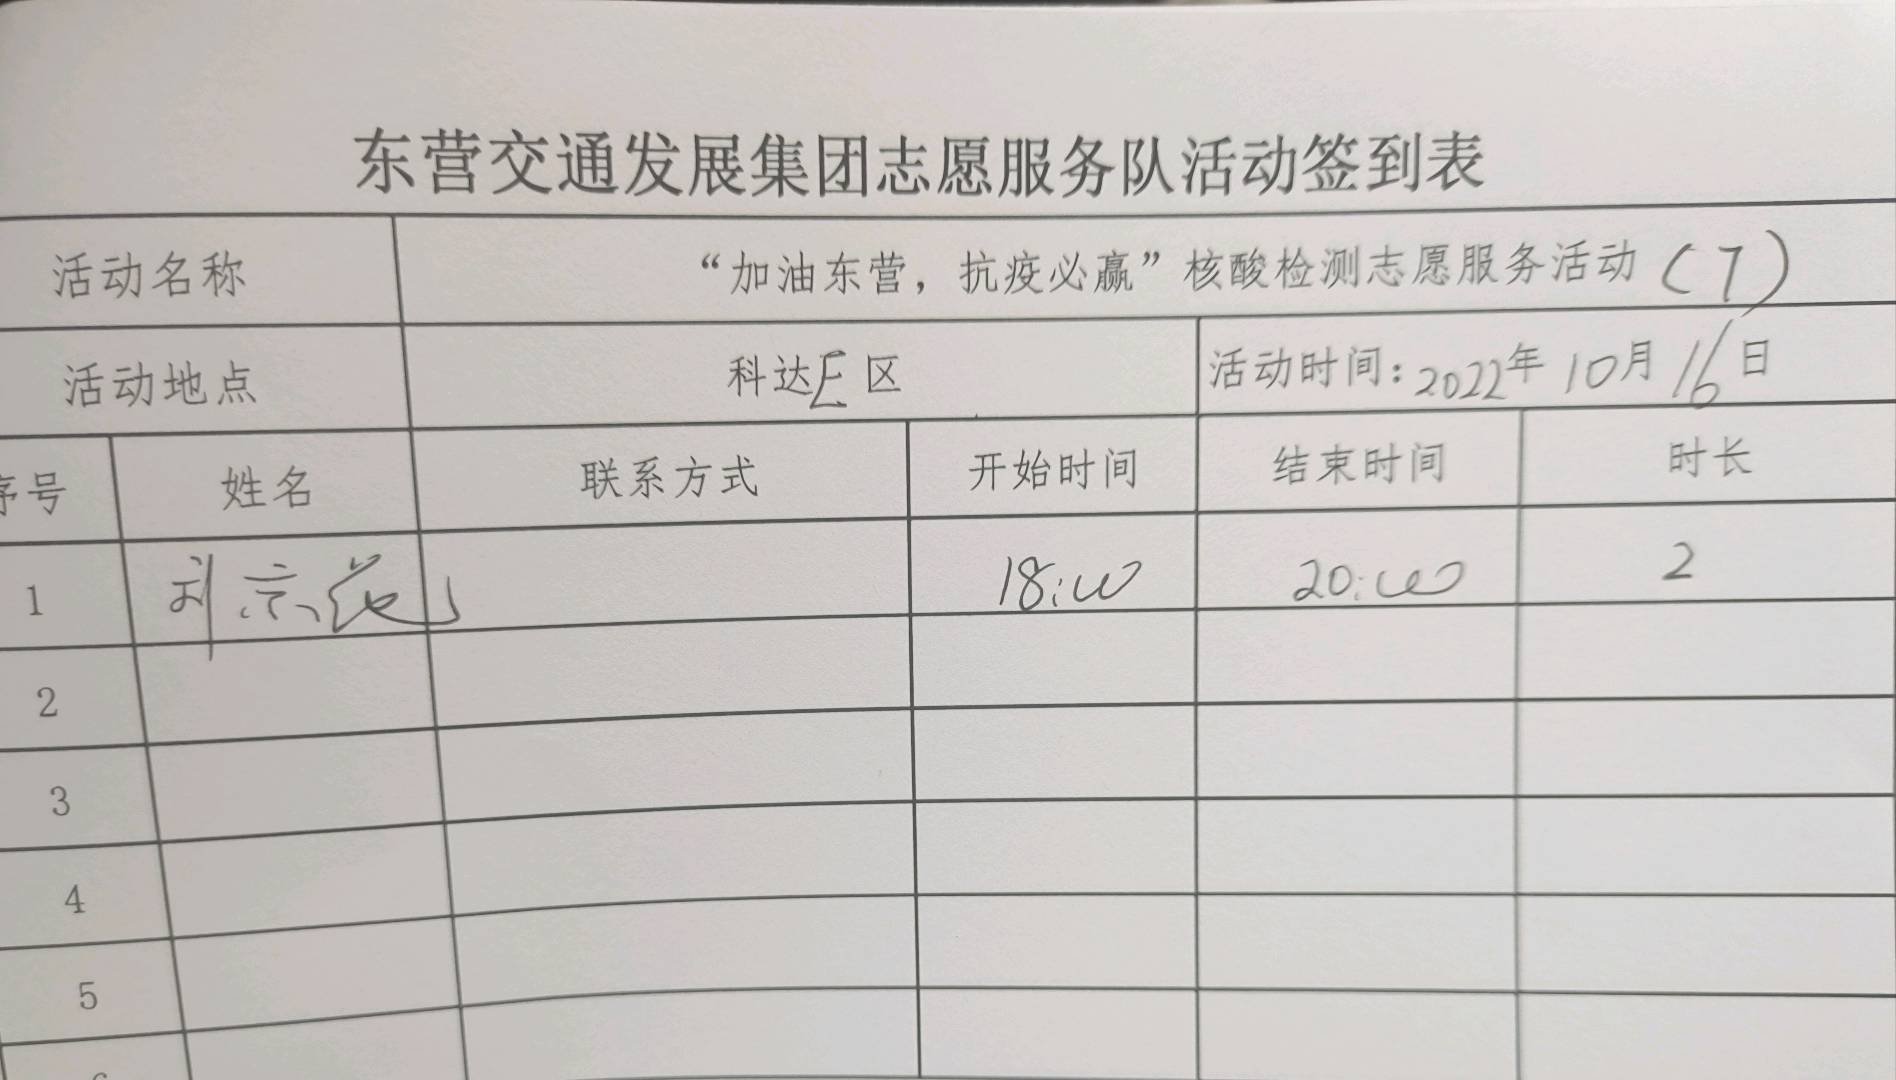 东营交通发展集团志愿服务队活动签到表
活动名称 “加油东营，抗疫必赢”核酸检测志愿服务活动（7）
活动地点 科达E区 活动时间：2022年10月16日
序号 姓名 联系方式 开始时间 结束时间 时长
1 刘京花 18:00 20:00 2
2
3
4
5